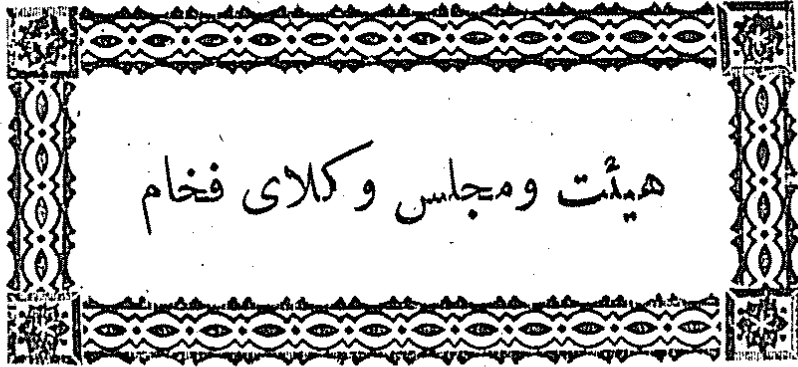 هیئت ومجلس وکلای فخام